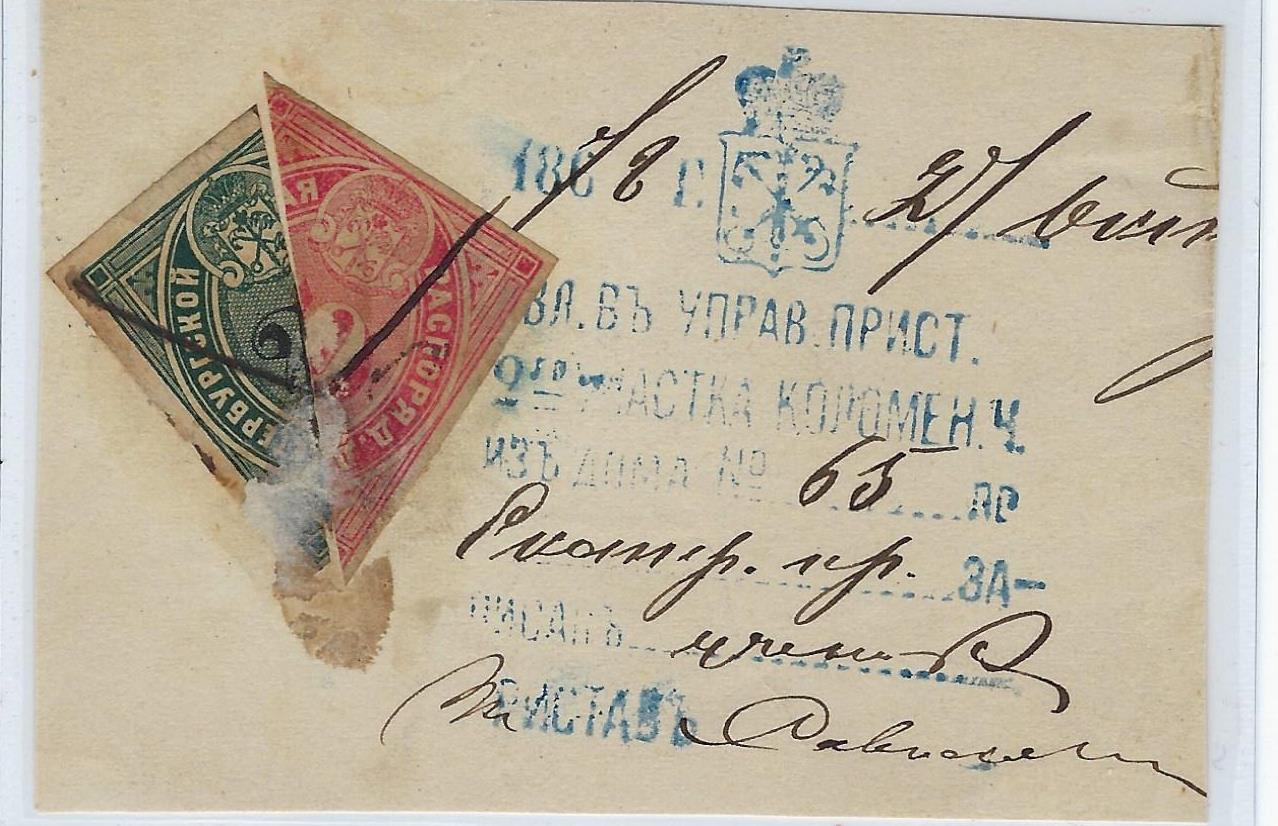 ЕРБУРГСКОЙ
АСПОРЯД.
Я
186 /8 г. 27/
ЯВЛ. ВЪ УПРАВ. ПРИСТ.
2го УЧАСТКА КОЛОМЕН. Ч.
ИЗЪ ДОМА № 65 ПО
Екатер. пр. ЗА-
ПИСАНЪ
ПРИСТАВЪ